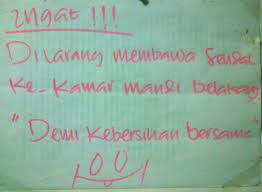 Ingat !!!
Dilarang membawa Sendal
Ke-Kamar mandi belakang
"Demi Kebersihan bersama"